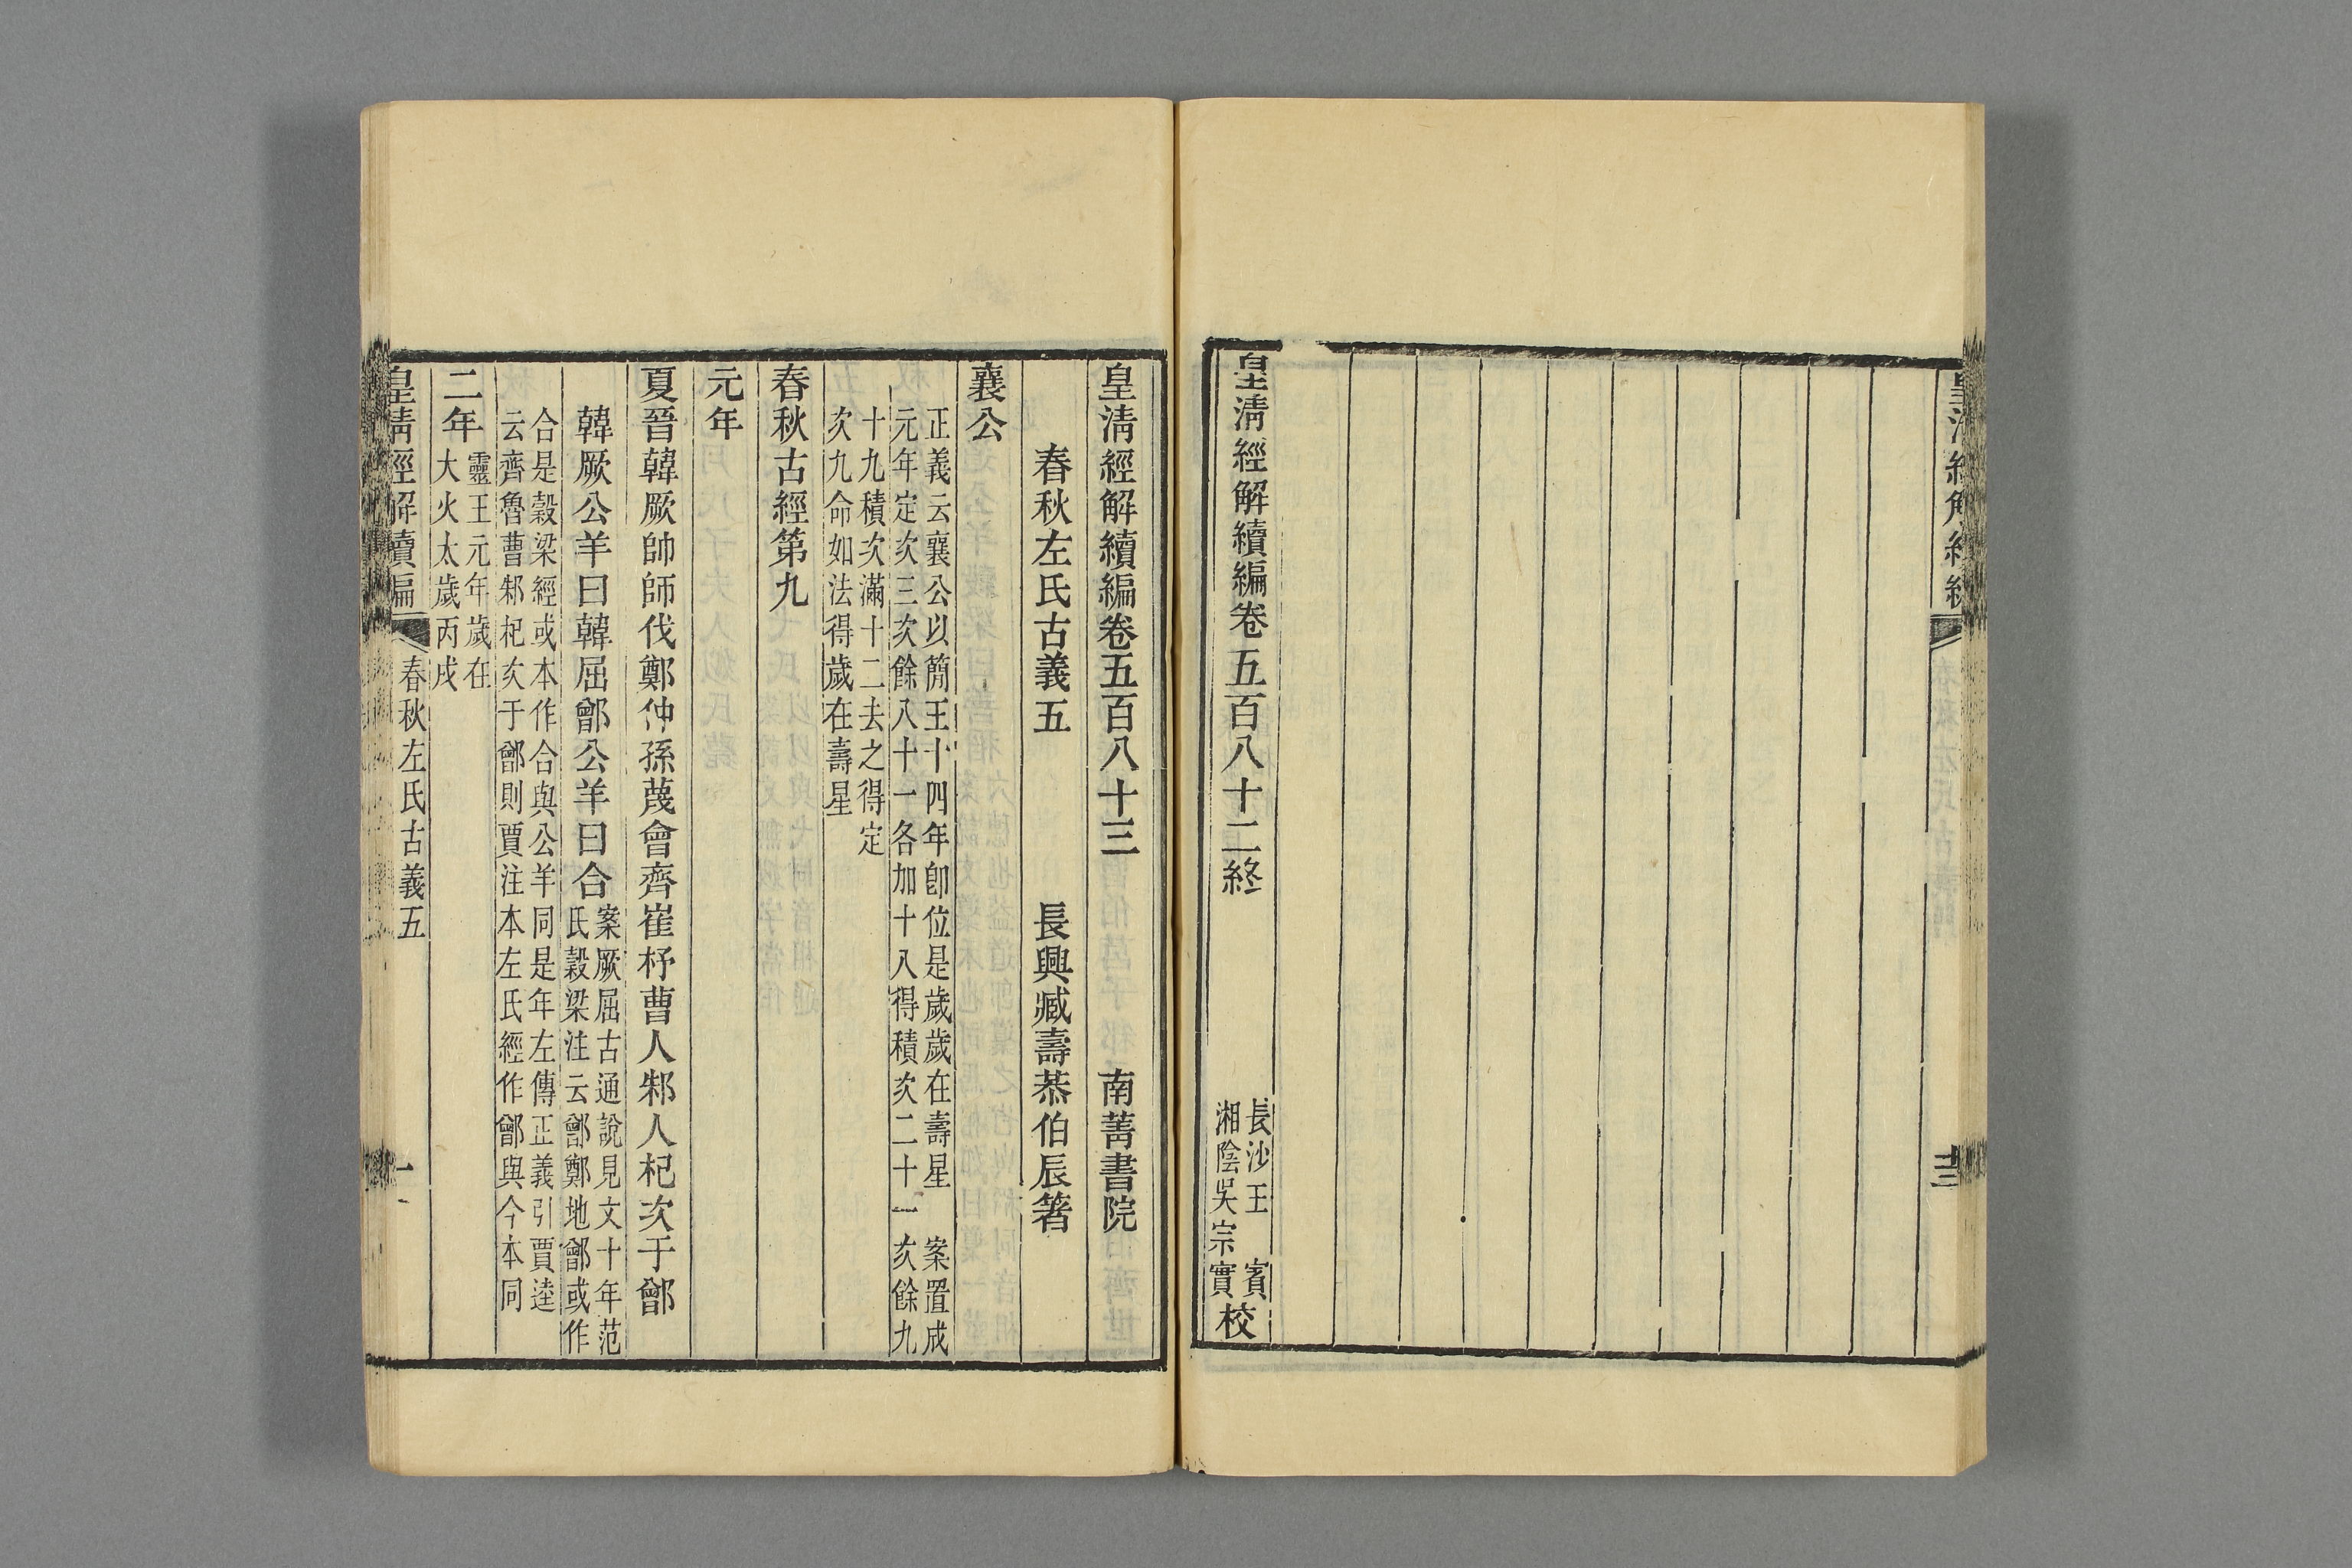 皇清經解續編卷五百八十二終
長沙王 賓
湘陰吳宗實
校
皇清經解續編卷五百八十三 南菁書院
春秋左氏古義五 長興臧壽恭伯辰箸
襄公
正義云襄公以簡王十四年卽位是歲歲在壽星 案置成
元年定次三次餘八十一各加十八得積次二十一亥餘九
十九積次滿十二去之得定
次九命如法得歲在壽星
春秋古經第九
元年
夏晉韓厥帥師伐鄭仲孫蔑會齊崔杼曹人邾人杞次于鄫
韓厥公羊曰韓屈鄫公羊曰合
案厥屈古通說見文十年范
氏穀梁注云鄫鄭地鄫或作
合是穀梁經或本作合與公羊同是年左傳正義引賈逵
云齊魯曹邾杞次于鄫則賈注本左氏經作鄫與今本同
二年
靈王元年歲在
大火太歲丙戌
皇清經解續編 春秋左氏古義五 一